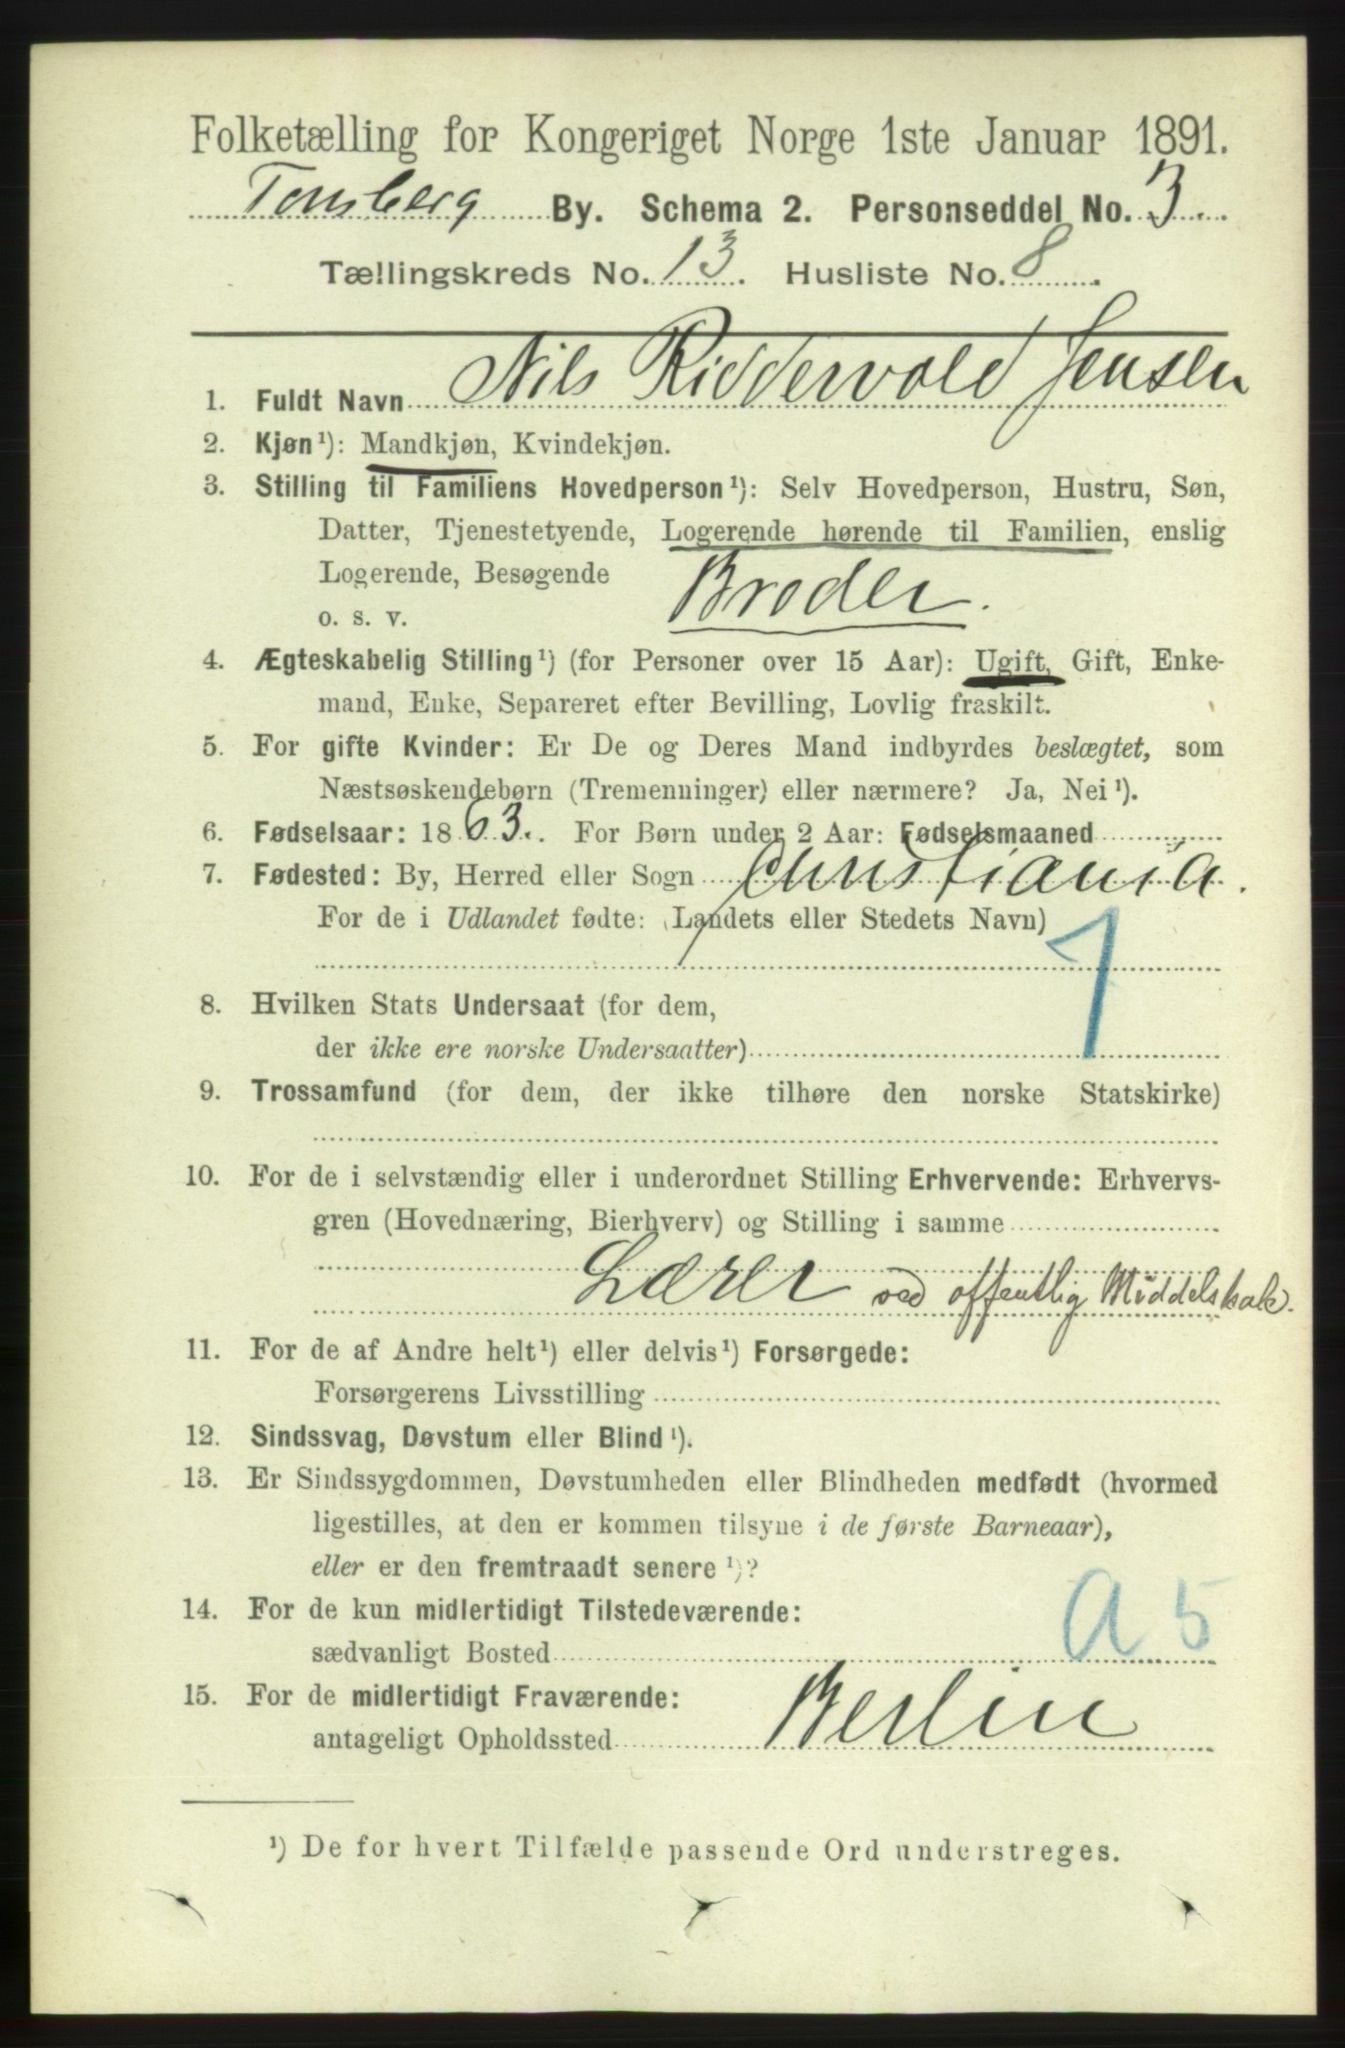 Folketælling for Kongeriget Norge 1ste Januar 1891.
Tønsberg By. Schema 2. Personseddel No. 3.
Tællingskreds No. 13. Husliste No. 8.
1. Fuldt Navn Nils Riddervold Jensen
2. Kjøn¹): Mandkjøn, Kvindekjøn.
3. Stilling til Familiens Hovedperson¹): Selv Hovedperson, Hustru, Søn,
Datter, Tjenestetyende, Logerende hørende til Familien, enslig
Logerende, Besøgende
o. s. v.
Broder.
4. Ægteskabelig Stilling¹) (for Personer over 15 Aar): Ugift, Gift, Enke-
mand, Enke, Separeret efter Bevilling, Lovlig fraskilt.
5. For gifte Kvinder: Er De og Deres Mand indbyrdes beslægtet, som
Næstsøskendebørn (Tremenninger) eller nærmere? Ja, Nei¹).
6. Fødselsaar: 1863. For Børn under 2 Aar: Fødselsmaaned
7. Fødested: By, Herred eller Sogn Christiania.
For de i Udlandet fødte: (Landets eller Stedets Navn)
1
8. Hvilken Stats Undersaat (for dem,
der ikke ere norske Undersaatter)
9. Trossamfund (for dem, der ikke tilhøre den norske Statskirke)
10. For de i selvstændig eller i underordnet Stilling Erhvervende: Erhvervs-
gren (Hovednæring, Bierhverv) og Stilling i samme
Lærer ved offentlig Middelskole.
11. For de af Andre helt¹) eller delvis¹) Forsørgede:
Forsørgerens Livsstilling
12. Sindssvag, Døvstum eller Blind¹).
13. Er Sindssygdommen, Døvstumheden eller Blindheden medfødt (hvormed
ligestilles, at den er kommen tilsyne i de første Barneaar),
eller er den fremtraadt senere¹)?
14. For de kun midlertidigt Tilstedeværende:
sædvanligt Bosted
a 5
15. For de midlertidigt Fraværende:
antageligt Opholdssted Berlin
¹) De for hvert Tilfælde passende Ord understreges.